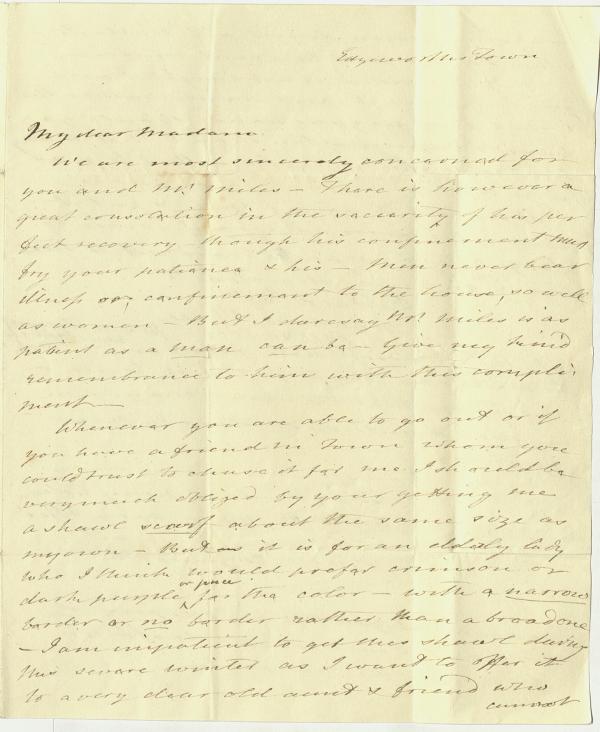 Edgeworths Town
My dear Madam
We are most sincerely concerned for
you and Mr. Miles – There is however a
great consolation in the security of his per
fect recovery – though his confinement must
try your patience & his – Men never bear
illness or confinement to the house, so well
as women – But I daresay Mr. Miles is as
patient as a man can be – Give my kind
remembrance to him with this compli
ment –
Whenever you are able to go out or if
you have a friend in Town whom you
could trust to chuse it for me I should be
very much obliged by your getting me
a shawl scarf about the same size as
my own – But as it is for an elderly lady
who I think would prefer crimson or
dark purple or puce for the color – with a narrow
border or no border rather than a broad one
– I am impatient to get this shawl during
this severe winter as I want to offer it
to a very dear old aunt & friend who
cannot